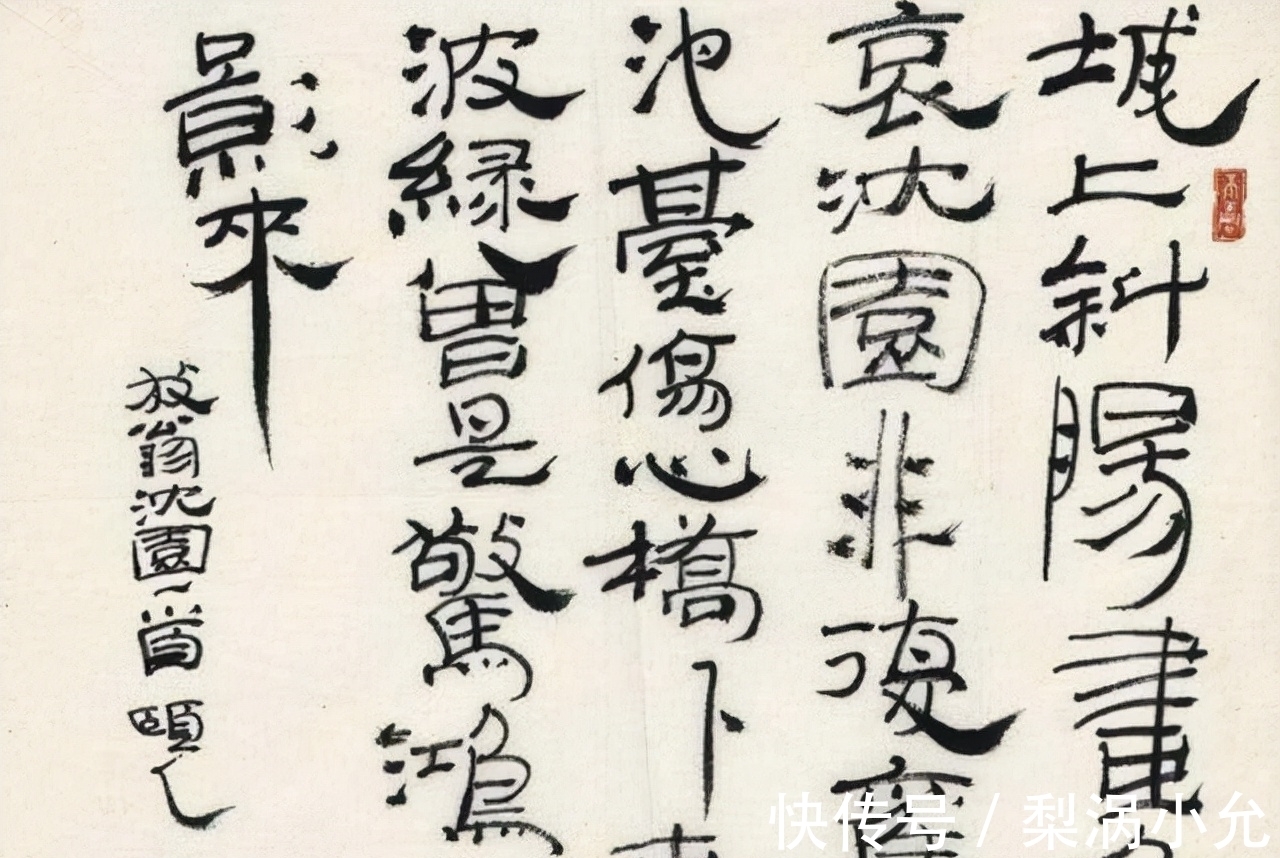 城上斜陽畫
哀沈園非復
池臺傷心橋下
波綠曾是驚鴻
影來
放翁沈園一首
快传号 / 梨涡小允